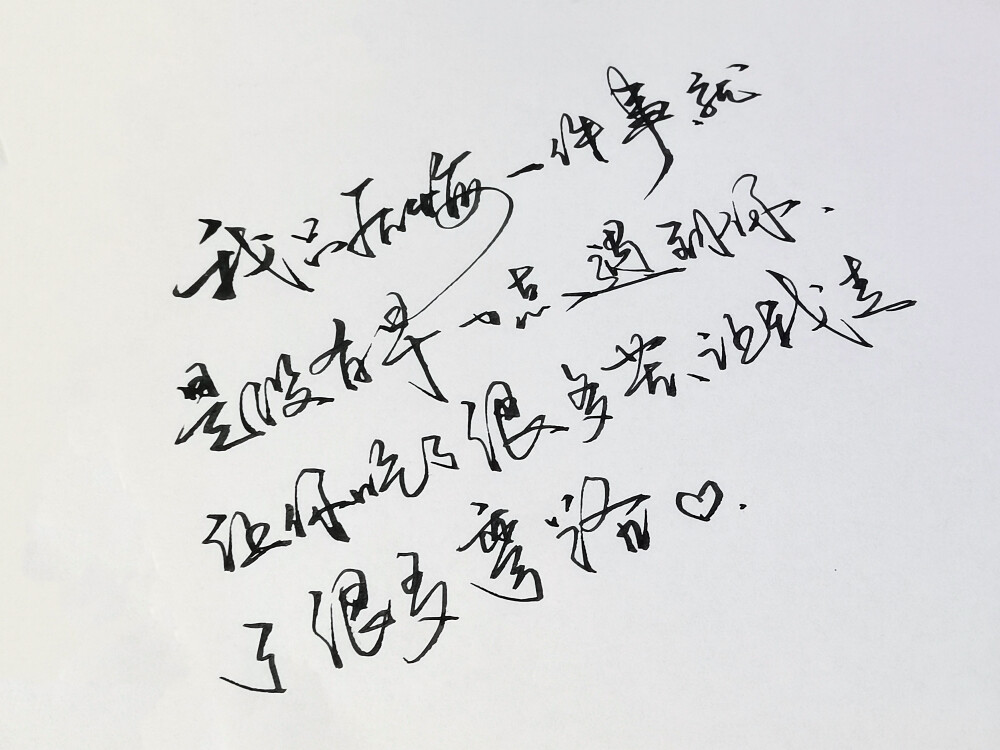 我只后悔一件事就
是没有早一点遇到你.
让你吃了很多苦、让我走
了很多弯路♡.